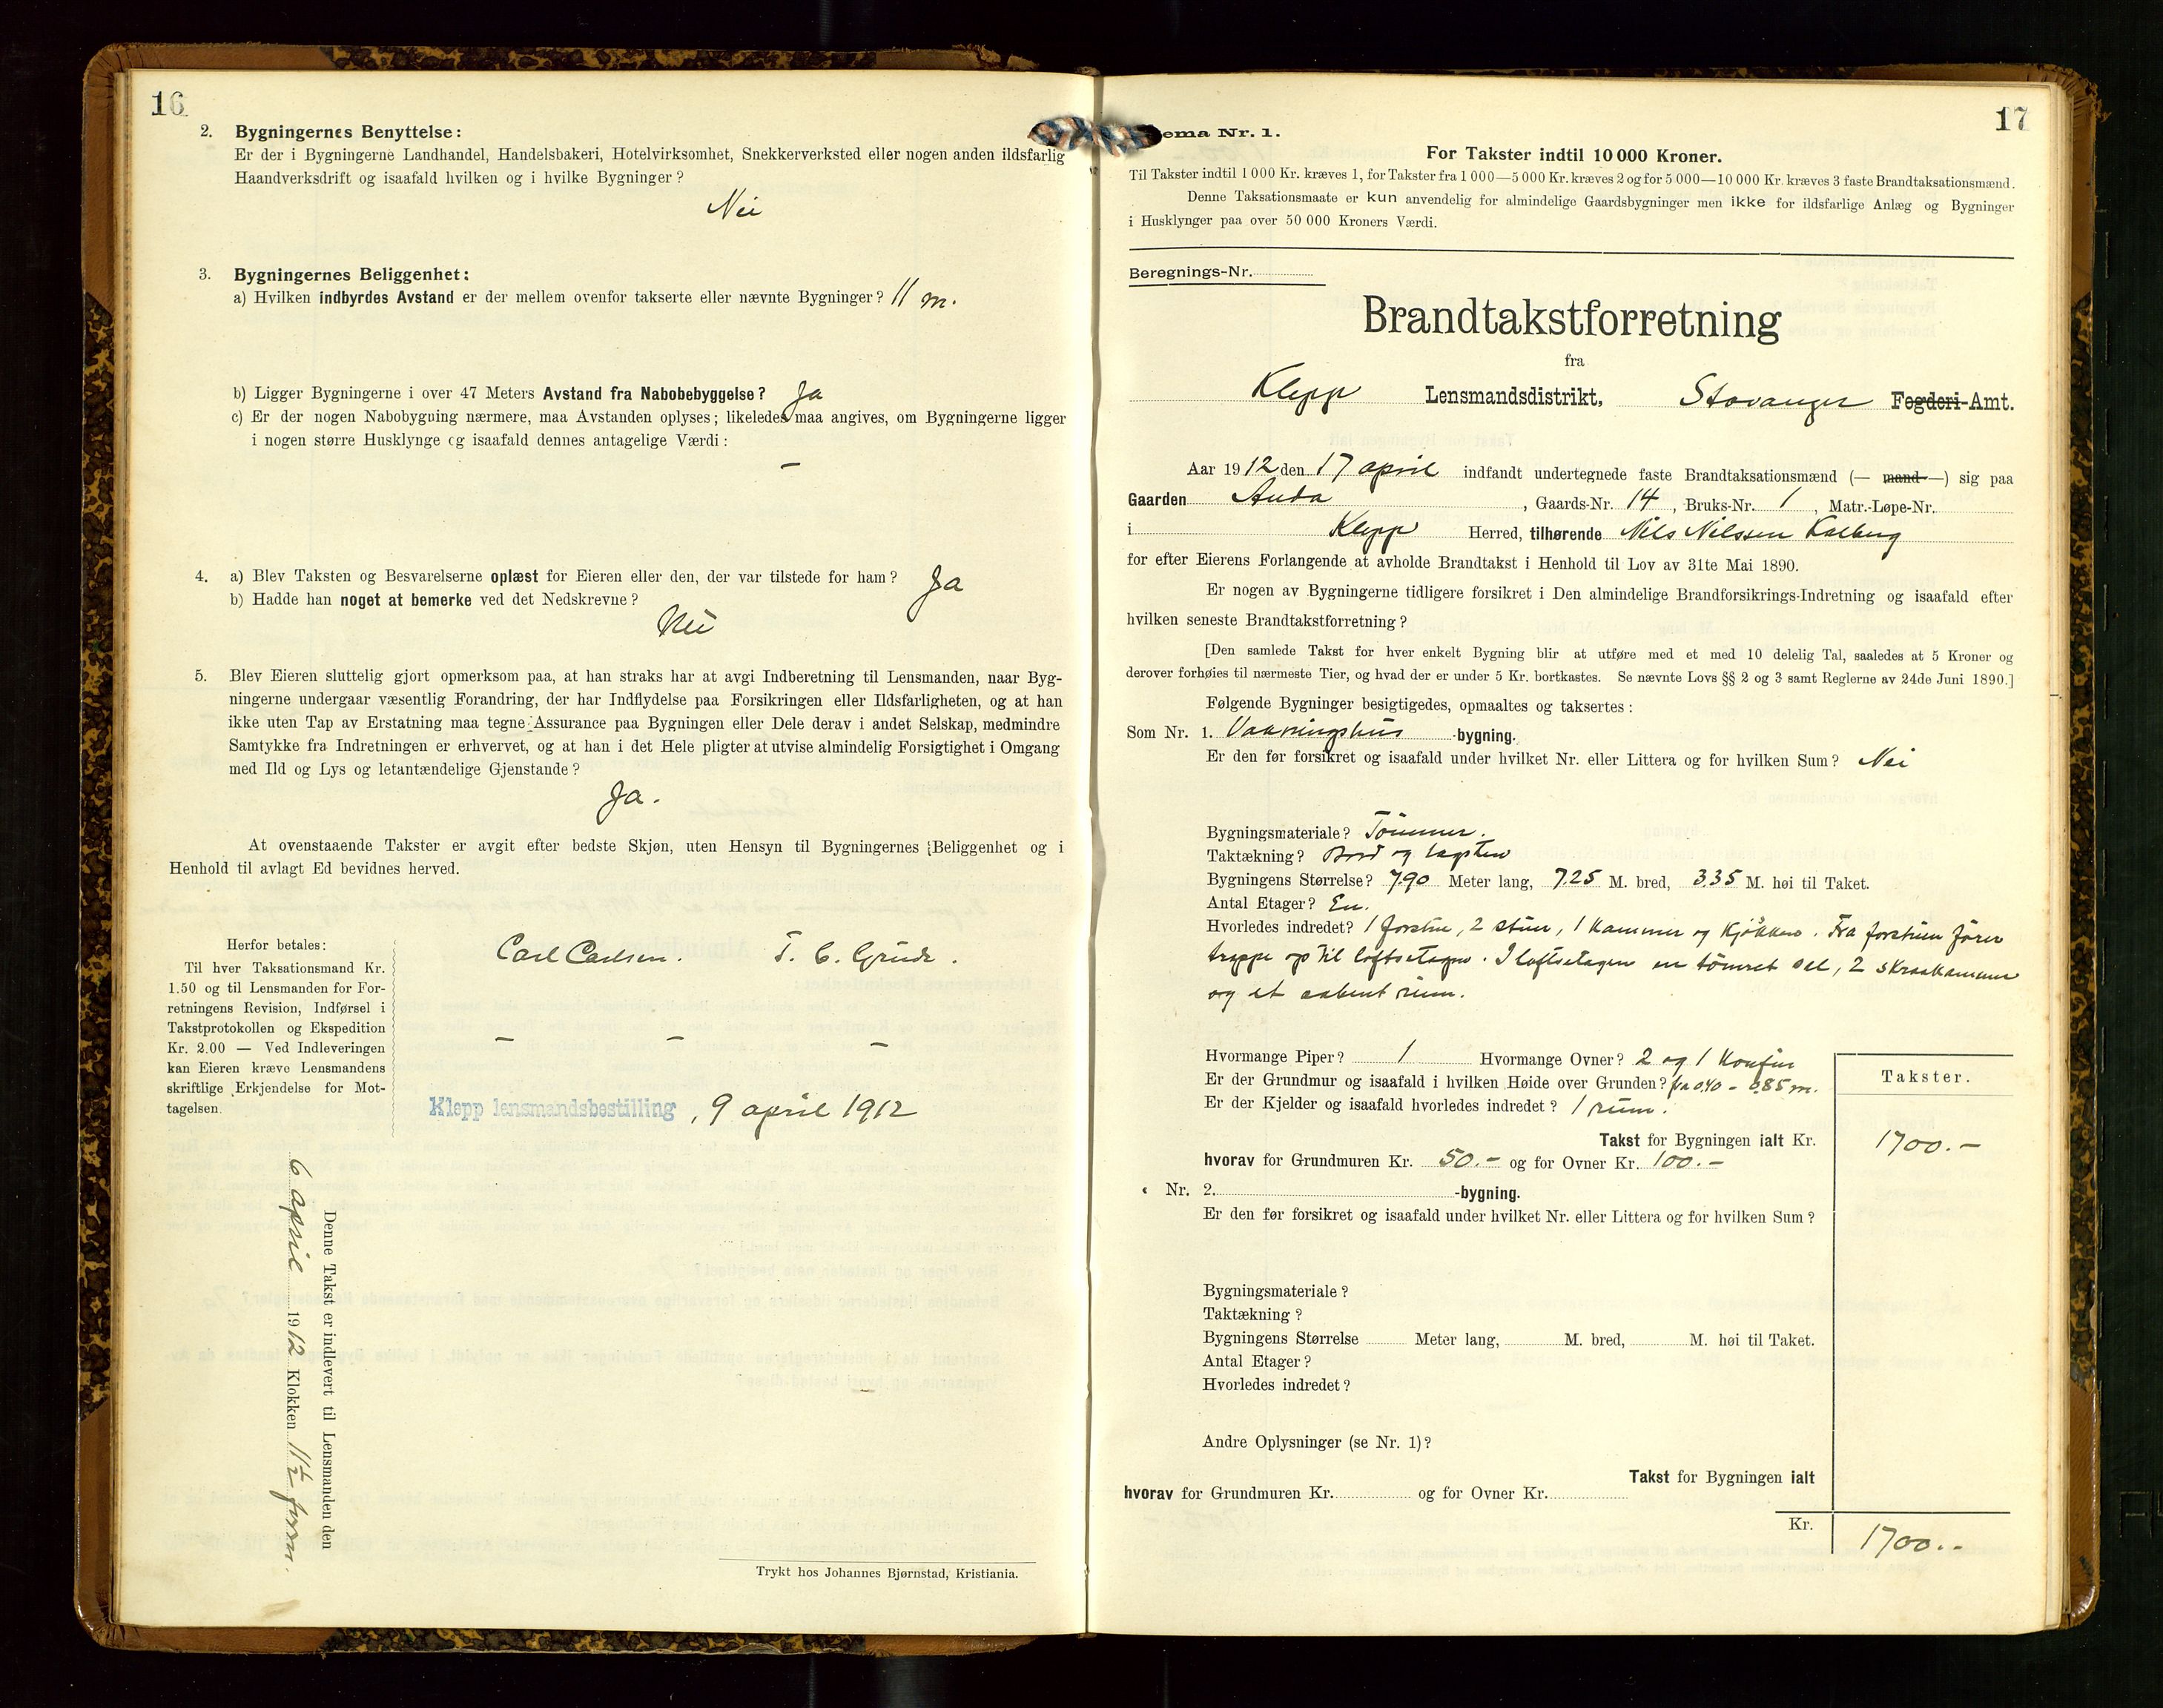 16
2. Bygningernes Benyttelse:
Er der i Bygningerne Landhandel, Handelsbakeri, Hotelvirksomhet, Snekkerverksted eller nogen anden ildsfarlig
Haandverksdrift og isaafald hvilken og i hvilke Bygninger?
Nei
3. Bygningernes Beliggenhet:
a) Hvilken indbyrdes Avstand er der mellem ovenfor takserte eller nævnte Bygninger? 11 m.
b) Ligger Bygningerne i over 47 Meters Avstand fra Nabobebyggelse? Ja
c) Er der nogen Nabobygning nærmere, maa Avstanden oplyses; likeledes maa angives, om Bygningerne ligger
i nogen større Husklynge og isaafald dennes antagelige Værdi:
–
4. a) Blev Taksten og Besvarelserne oplæst for Eieren eller den, der var tilstede for ham? Ja
b) Hadde han noget at bemerke ved det Nedskrevne?
Nei
5. Blev Eieren sluttelig gjort opmerksom paa, at han straks har at avgi Indberetning til Lensmanden, naar Byg-
ningerne undergaar væsentlig Forandring, der har Indflydelse paa Forsikringen eller Ildsfarligheten, og at han
ikke uten Tap av Erstatning maa tegne Assurance paa Bygningen eller Dele derav i andet Selskap, medmindre
Samtykke fra Indretningen er erhvervet, og at han i det Hele pligter at utvise almindelig Forsigtighet i Omgang
med Ild og Lys og letantændelige Gjenstande?
Ja.
At ovenstaaende Takster er avgit efter bedste Skjøn, uten Hensyn til Bygningernes Beliggenhet og i
Henhold til avlagt Ed bevidnes herved.
Herfor betales:
Til hver Taksationsmand Kr.
1.50 og til Lensmanden for For-
retningens Revision, Indførsel i
Takstprotokollen og Ekspedition
Kr. 2.00 — Ved Indleveringen
kan Eieren kræve Lensmandens
skriftlige Erkjendelse for Mot-
tagelsen.
Carl Carlsen. T. C. Grude.
– – –
Klepp lensmandsbestilling, 9 april 1912
Denne Takst er indlevert til Lensmanden den
6 april 1912 Klokken 11½ form.
Trykt hos Johannes Bjørnstad, Kristiania.
17
ema Nr. 1.
For Takster indtil 10 000 Kroner.
Til Takster indtil 1 000 Kr. kræves 1, for Takster fra 1 000—5 000 Kr. kræves 2 og for 5 000—10 000 Kr. kræves 3 faste Brandtaksationsmænd.
Denne Taksationsmaate er kun anvendelig for almindelige Gaardsbygninger men ikke for ildsfarlige Anlæg og Bygninger
i Husklynger paa over 50 000 Kroners Værdi.
Beregnings-Nr.
Brandtakstforretning
fra
Klepp Lensmandsdistrikt, Stavanger Fogderi-Amt.
Aar 1912 den 17 april indfandt undertegnede faste Brandtaksationsmænd (— mand —) sig paa
Gaarden Anda, Gaards-Nr. 14, Bruks-Nr. 1, Matr.-Løpe-Nr.
i Klepp Herred, tilhørende Nils Nilssen Kalberg
for efter Eierens Forlangende at avholde Brandtakst i Henhold til Lov av 31te Mai 1890.
Er nogen av Bygningerne tidligere forsikret i Den almindelige Brandforsikrings-Indretning og isaafald efter
hvilken seneste Brandtakstforretning?
[Den samlede Takst for hver enkelt Bygning blir at utføre med et med 10 delelig Tal, saaledes at 5 Kroner og
derover forhøies til nærmeste Tier, og hvad der er under 5 Kr. bortkastes. Se nævnte Lovs §§ 2 og 3 samt Reglerne av 24de Juni 1890.]
Følgende Bygninger besigtigedes, opmaaltes og taksertes:
Som Nr. 1. Vaaningshus -bygning.
Er den før forsikret og isaafald under hvilket Nr. eller Littera og for hvilken Sum? Nei
Bygningsmateriale? Tömmer.
Taktækning? Bord og tagsten
Bygningens Størrelse? 7.90 Meter lang, 7.25 M. bred, 3.35 M. høi til Taket.
Antal Etager? En.
Hvorledes indredet? 1 forstue, 2 stuer, 1 kammer og kjökken. Fra forstuen förer
trappe op til loftsetagen. I loftsetagen en tömret sal, 2 skraakammer
og et aabent rum.
Hvormange Piper? 1 Hvormange Ovner? 2 og 1 Komfur
Er der Grundmur og isaafald i hvilken Høide over Grunden? fra 0.40 – 0.85 m.
Er der Kjelder og isaafald hvorledes indredet? 1 rum.
Takster.
Takst for Bygningen ialt Kr. 1700.–
hvorav for Grundmuren Kr. 50.– og for Ovner Kr. 100.–
Nr. 2. -bygning.
Er den før forsikret og isaafald under hvilket Nr. eller Littera og for hvilken Sum?
Bygningsmateriale?
Taktækning?
Bygningens Størrelse Meter lang, M. bred, M. høi til Taket.
Antal Etager?
Hvorledes indredet?
Andre Oplysninger (se Nr. 1)?
Takst for Bygningen ialt
hvorav for Grundmuren Kr. og for Ovner Kr.
Kr. 1700.–